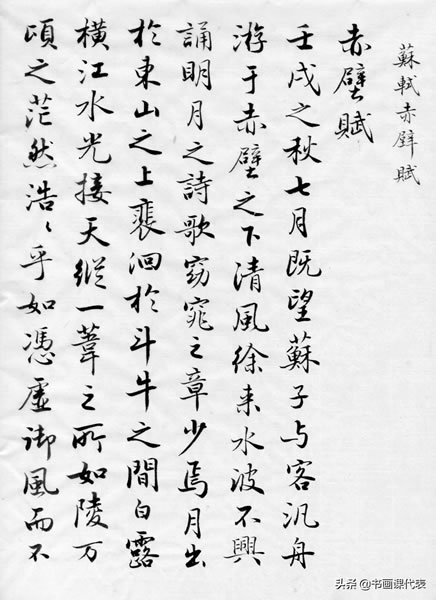 蘇軾赤壁賦
赤壁賦
壬戌之秋七月既望蘇子与客汎舟
游于赤壁之下清風徐来水波不興
誦明月之詩歌窈窕之章少焉月出
於東山之上裴洄於斗牛之間白露
横江水光接天縱一葦之所如陵万
頃之茫然浩〻乎如憑虚御風而不
头条 @书画课代表